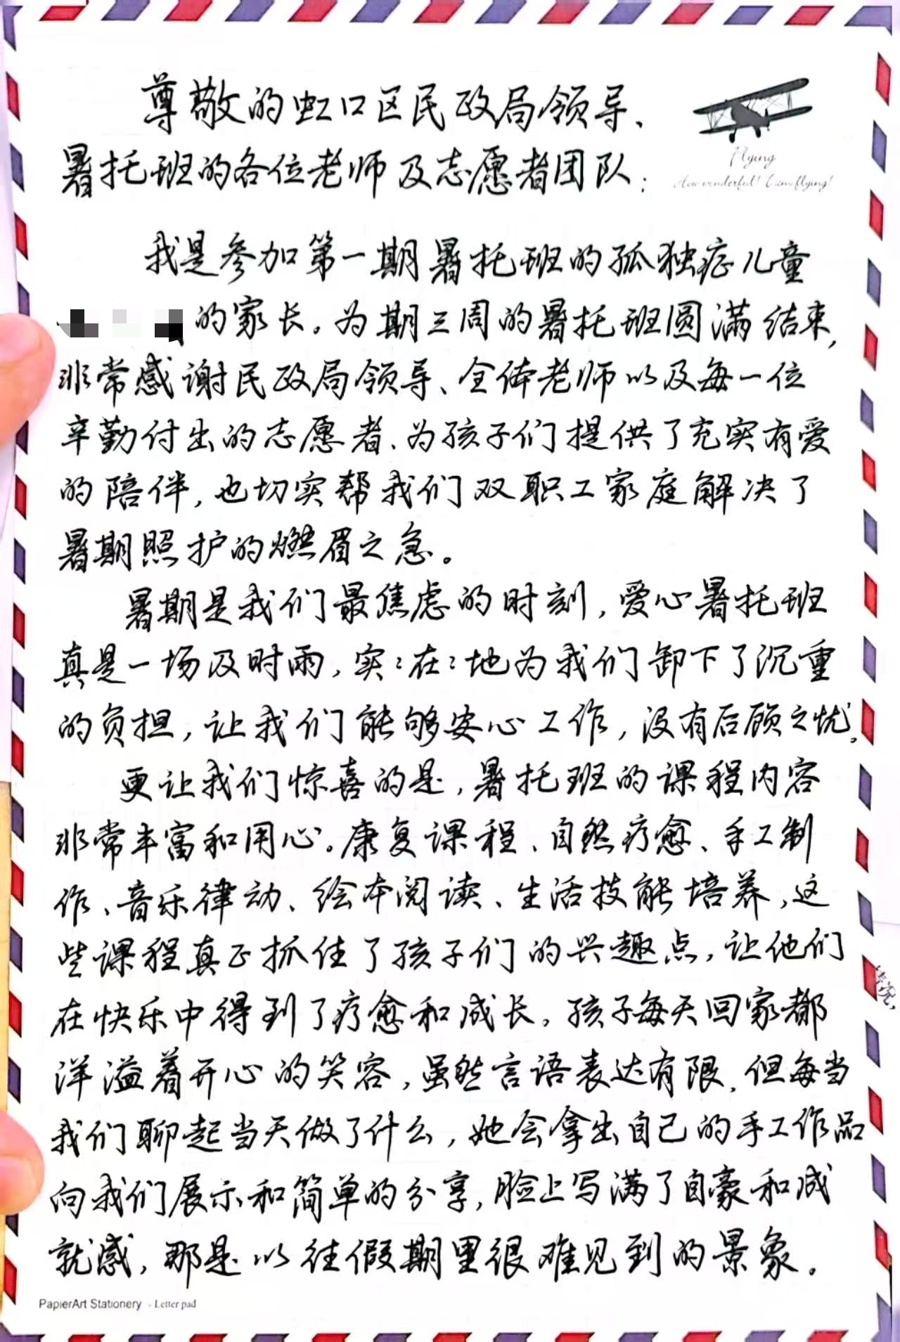 尊敬的虹口区民政局领导、
Flying
How wonderful! I am flying!
暑托班的各位老师及志愿者团队：
我是参加第一期暑托班的孤独症儿童
的家长。为期三周的暑托班圆满结束，
非常感谢民政局领导、全体老师以及每一位
辛勤付出的志愿者、为孩子们提供了充实有爱
的陪伴，也切实帮我们双职工家庭解决了
暑期照护的燃眉之急。
暑期是我们最焦虑的时刻，爱心暑托班
真是一场及时雨，实：在：地为我们卸下了沉重
的负担，让我们能够安心工作，没有后顾之忧，
更让我们惊喜的是，暑托班的课程内容
非常丰富和用心。康复课程、自然疗愈、手工制
作、音乐律动、绘本阅读、生活技能培养，这
些课程真正抓住了孩子们的兴趣点，让他们
在快乐中得到了疗愈和成长，孩子每天回家都
洋溢着开心的笑容，虽然言语表达有限，但每当
我们聊起当天做了什么，她会拿出自己的手工作品
向我们展示和简单的分享，脸上写满了自豪和成
就感，那是以往假期里很难见到的景象。
PapierArt Stationery - Letter pad